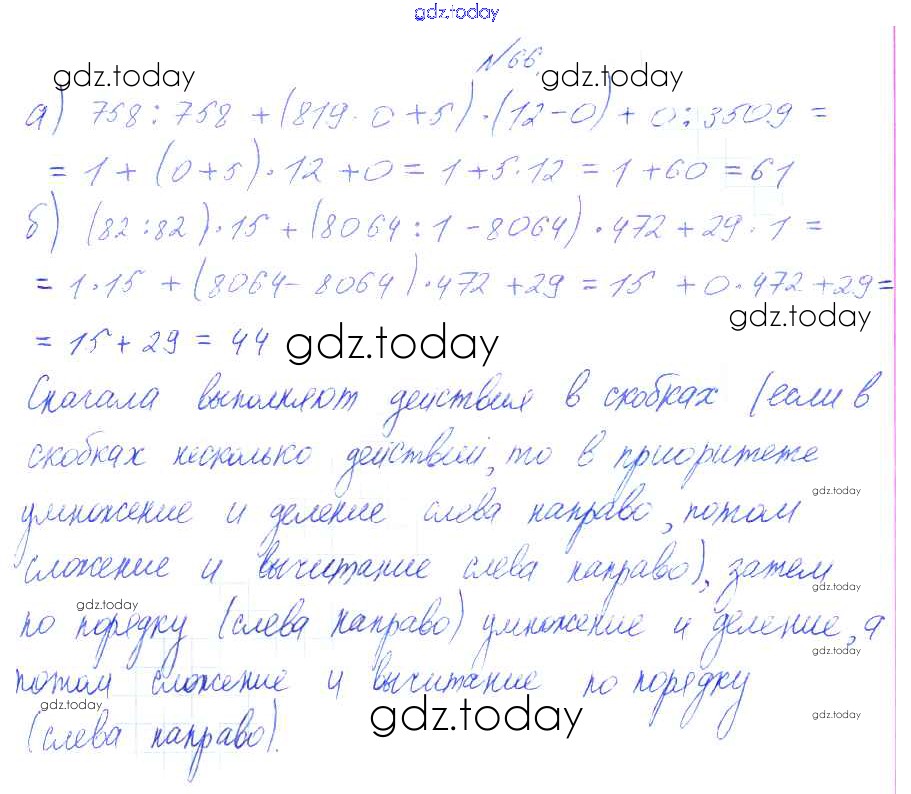 gdz.today
№66
gdz.today gdz.today
а) 758 : 758 + (819 · 0 + 5) · (12 - 0) + 0 : 3509 =
= 1 + (0 + 5) · 12 + 0 = 1 + 5 · 12 = 1 + 60 = 61
б) (82 : 82) · 15 + (8064 : 1 - 8064) · 472 + 29 · 1 =
= 1 · 15 + (8064 - 8064) · 472 + 29 = 15 + 0 · 472 + 29 =
gdz.today
= 15 + 29 = 44 gdz.today
Сначала выполняют действия в скобках (если в
скобках несколько действий, то в приоритете
gdz.today
умножение и деление слева направо, потом
сложение и вычитание слева направо), затем
gdz.today
gdz.today
по порядку (слева направо) умножение и деление, а
gdz.today
потом сложение и вычитание по порядку
gdz.today gdz.today gdz.today
(слева направо).